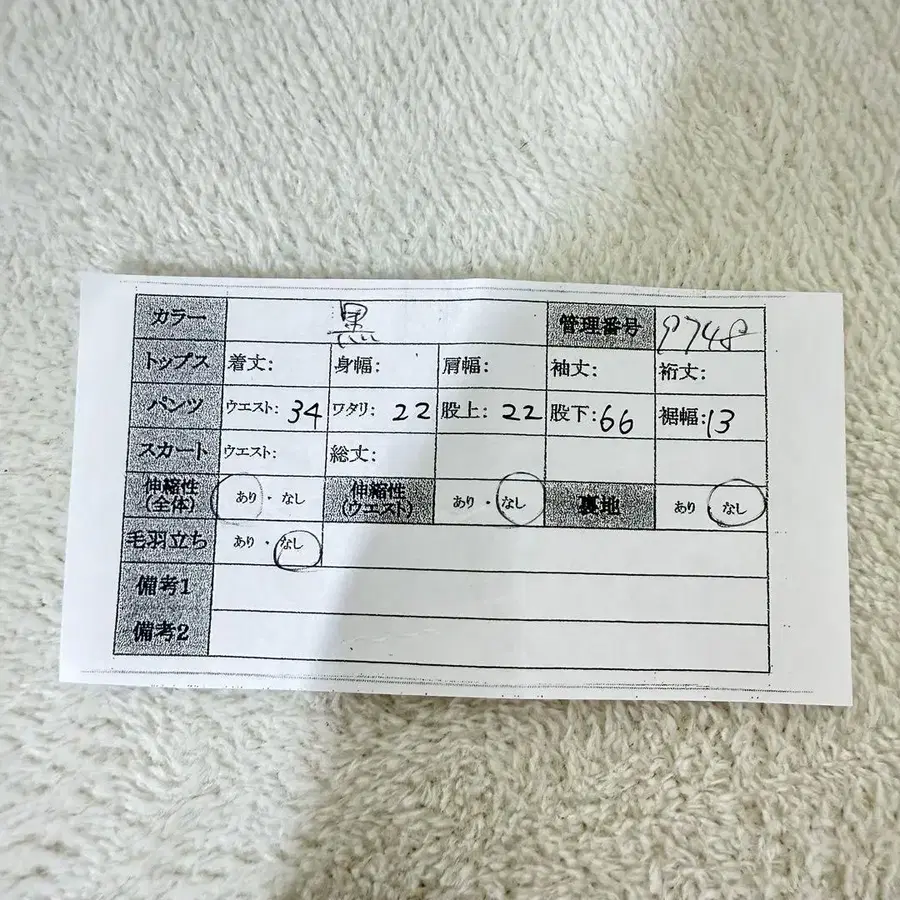 カラー 黒 管理番号 9748
トップス 着丈: 身幅: 肩幅: 袖丈: 裄丈:
パンツ ウエスト: 34 ワタリ: 22 股上: 22 股下: 66 裾幅: 13
スカート ウエスト: 総丈:
伸縮性(全体) あり・なし 伸縮性(ウエスト) あり・なし 裏地 あり・なし
毛羽立ち あり・なし
備考1
備考2